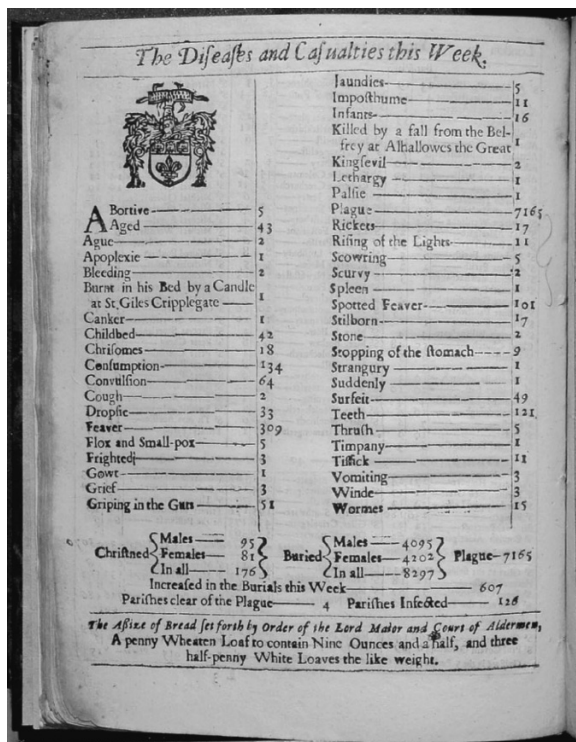 The Diſeaſes and Caſualties this Week.
ABortive 5
Aged 43
Ague 2
Apoplexie 1
Bleeding 2
Burnt in his Bed by a Candle
at St. Giles Cripplegate 1
Canker 1
Childbed 42
Chriſomes 18
Conſumption 134
Convulſion 64
Cough 2
Dropſie 33
Feaver 309
Flox and Small-pox 5
Frighted 3
Gowt 1
Grief 3
Griping in the Guts 51
Jaundies 5
Impoſthume 11
Infants 16
Killed by a fall from the Bel-
frey at Alhallowes the Great 1
Kingſevil 2
Lethargy 1
Palſie 1
Plague 7165
Rickets 17
Riſing of the Lights 11
Scowring 5
Scurvy 2
Spleen 1
Spotted Feaver 101
Stilborn 17
Stone 2
Stopping of the ſtomach 9
Strangury 1
Suddenly 1
Surfeit 49
Teeth 121
Thruſh 5
Timpany 1
Tiſſick 11
Vomiting 3
Winde 3
Wormes 15
Chriſtned { Males 95 Females 81 In all 176 }
Buried { Males 4095 Females 4202 In all 8297 } Plague 7165
Increaſed in the Burials this Week 607
Pariſhes clear of the Plague 4 Pariſhes Infected 126
The Aſſize of Bread ſet forth by Order of the Lord Maior and Court of Aldermen,
A penny Wheaten Loaf to contain Nine Ounces and a half, and three
half-penny White Loaves the like weight.